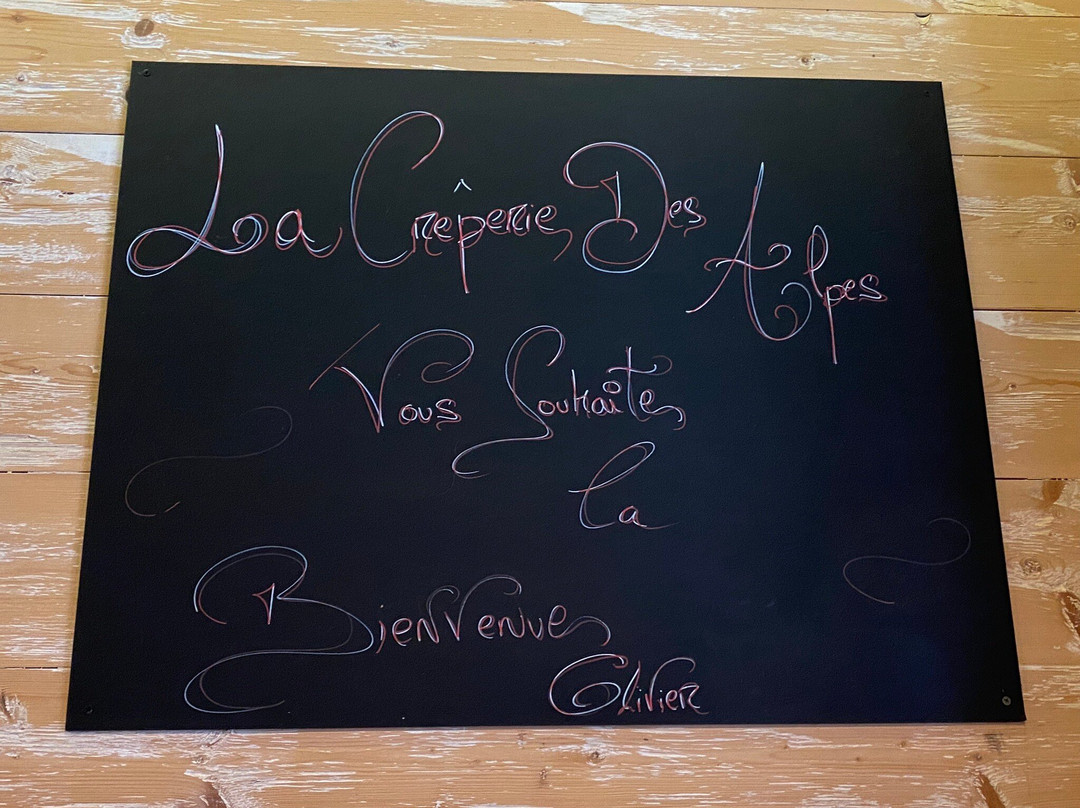 La Crêperie Des Alpes
Vous Souhaite
la
Bienvenue
Olivier